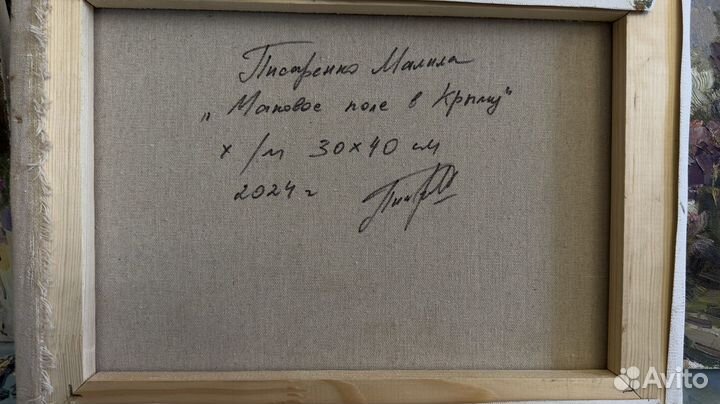 Писаренко Малила
„Маковое поле в Крыму"
х/м 30×40 см
2024 г
Avito